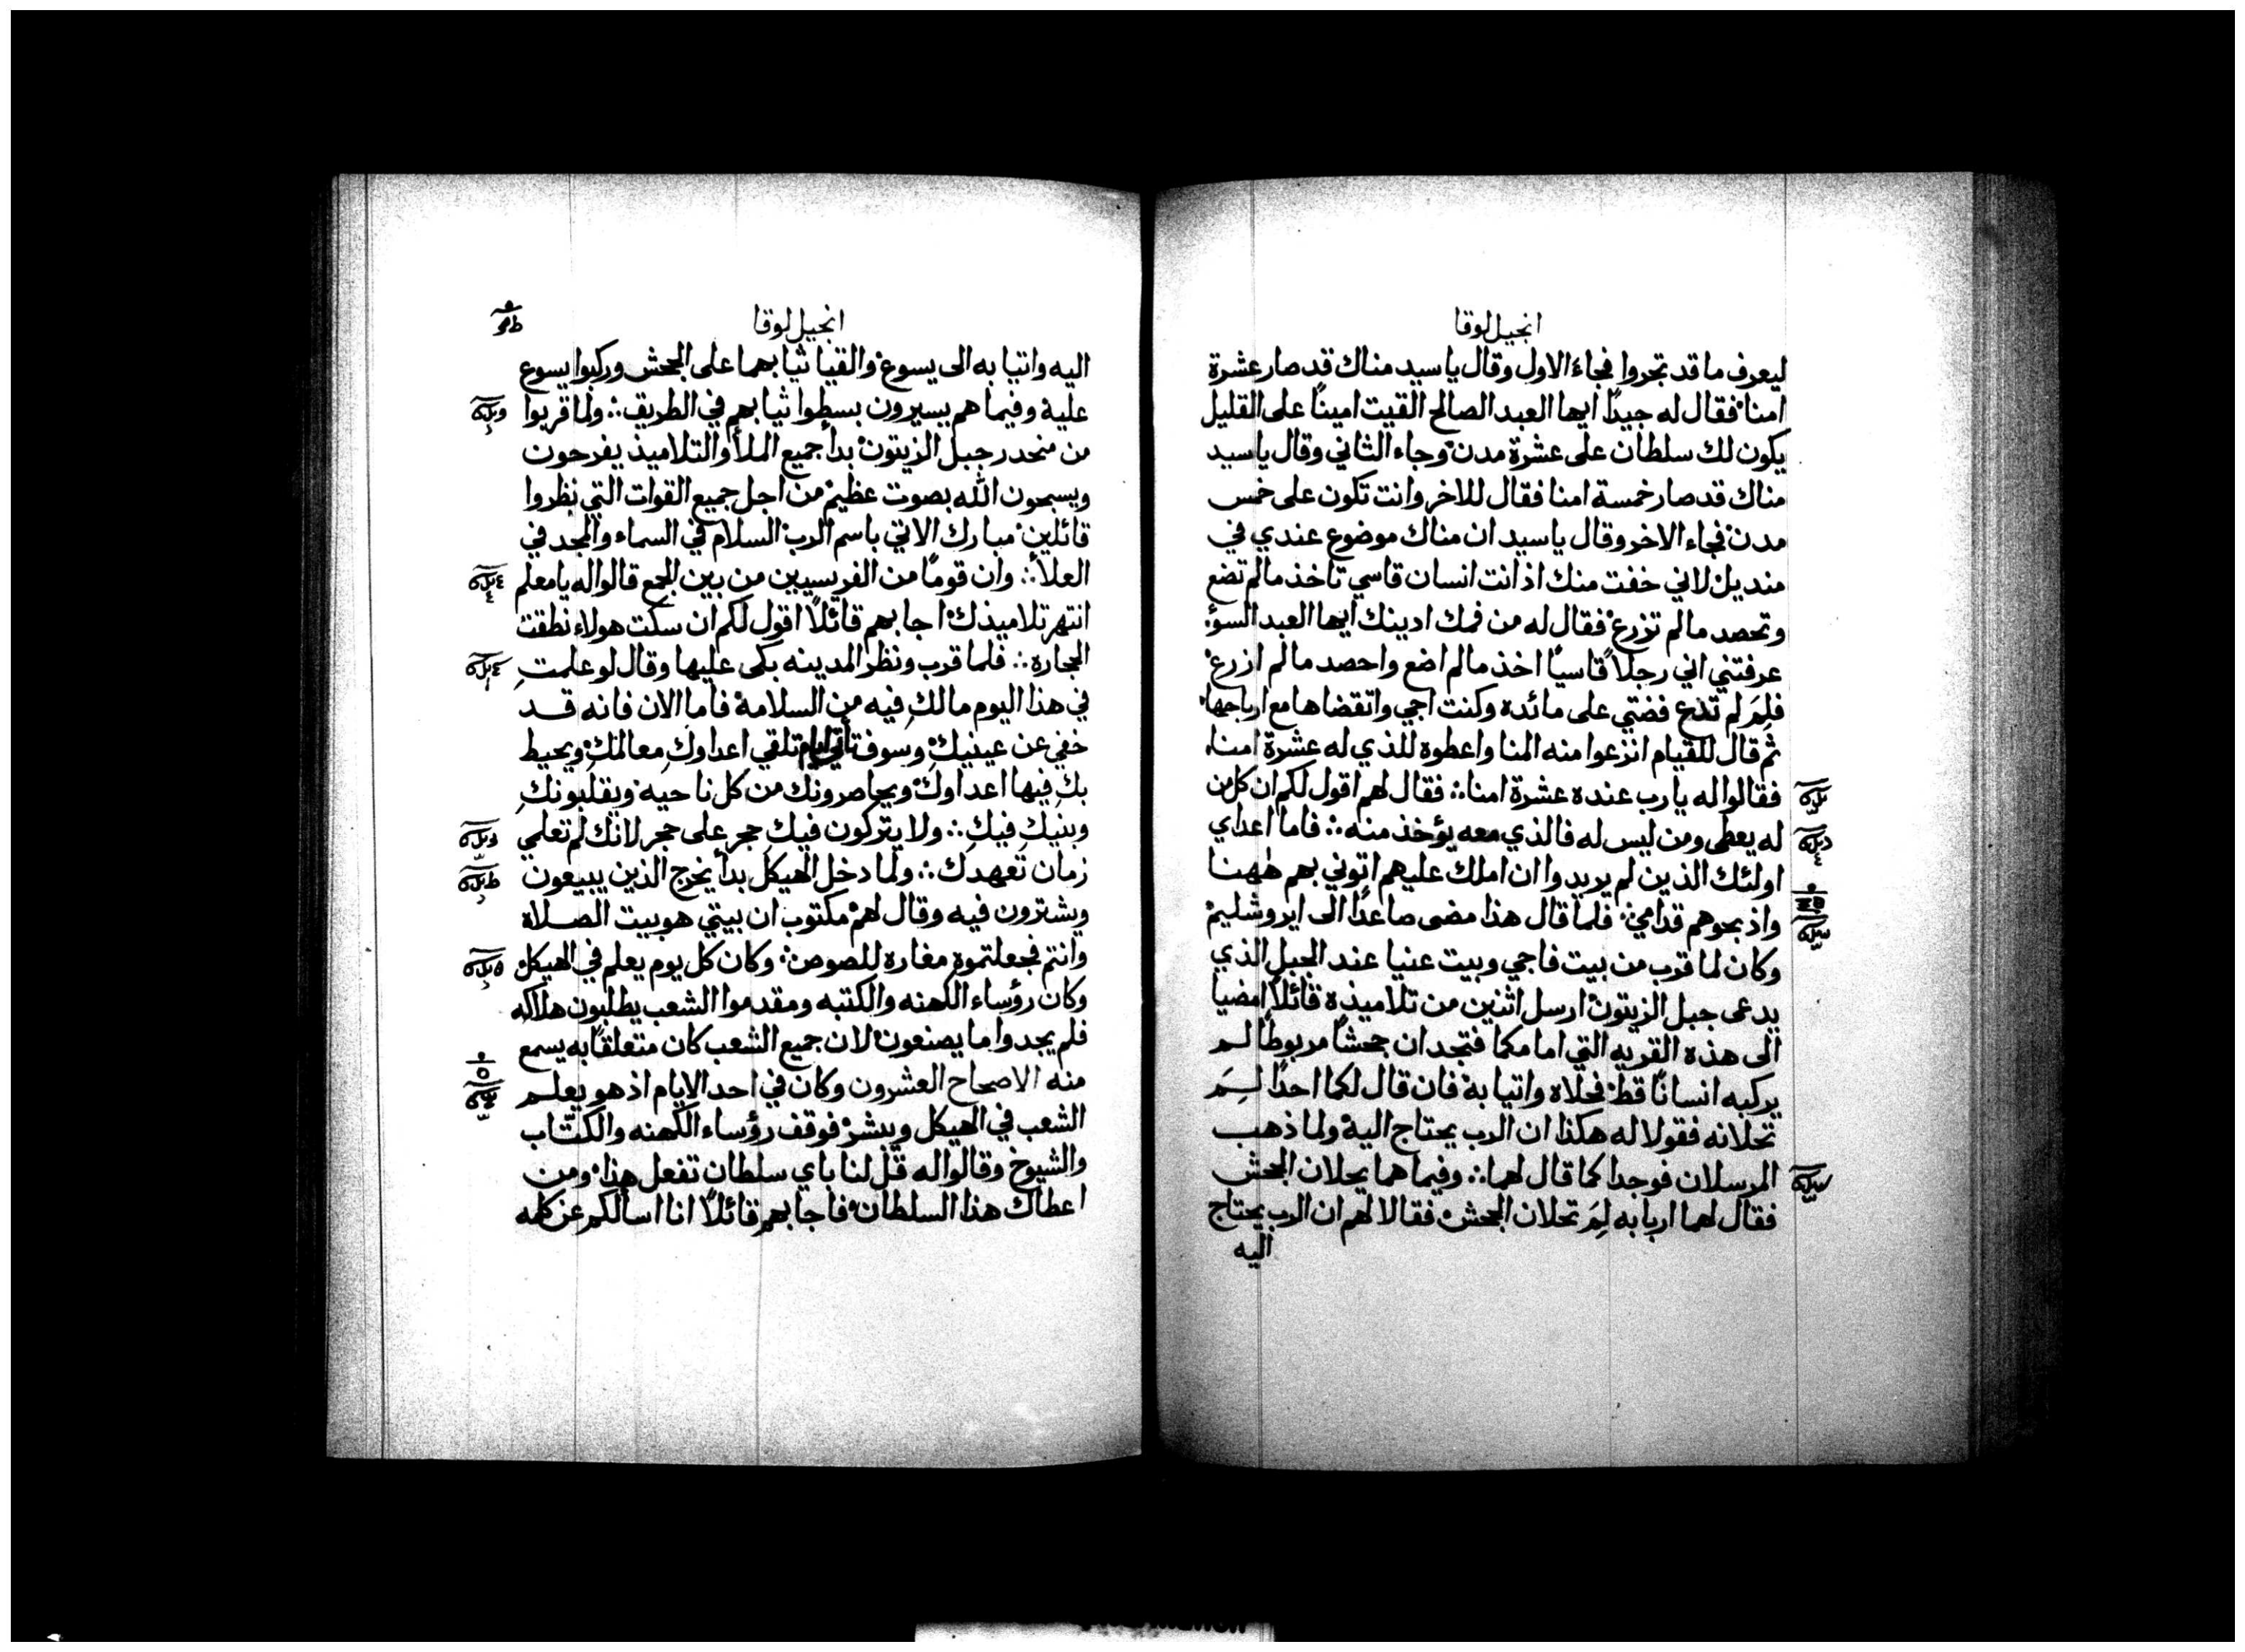 انجيل لوقا
ليعرف ما قد تجروا فجاء الاول وقال يا سيد مناك قد صار عشرة
امنا فقال له جيدًا ايها العبد الصالح القيت امينًا على القليل
يكون لك سلطان على عشرة مدن وجاء الثاني وقال يا سيد
مناك قد صار خمسة امنا فقال للاخر وانت تكون على خمس
مدن فجاء الاخر وقال يا سيد ان مناك موضوع عندي في
منديل لاني خفت منك اذ انت انسان قاسي تاخذ مالم تضع
وتحصد مالم تزرع فقال له من فمك ادينك ايها العبد السؤ
عرفتني اني رجلاً قاسيًا اخذ مالم اضع واحصد مالم ازرع
فلِمَ لم تدع فضتي على مائده وكنت اجي واتقضاها مع ارباحها
ثم قال للقيام انزعوا منه المنا واعطوه للذي له عشرة امنا
فقالوا له يا رب عنده عشرة امنا فقال لهم اقول لكم ان كل من
له يعطى ومن ليس له فالذي معه يؤخذ منه فاما اعداي
اولئك الذين لم يريدوا ان املك عليهم اتوني بهم ههنا
واذبحوهم قدامي فلما قال هذا مضى صاعدًا الى ايروشليم
وكان لما قرب من بيت فاجي وبيت عنيا عند الجبل الذي
يدعى جبل الزيتون ارسل اثنين من تلاميذه قائلاً امضيا
الى هذه القريه التي امامكما فتجدان جحشًا مربوطًا لم
يركبه انسانًا قط فحلاه واتيا به فان قال لكما احدًا لِمَ
تحلانه فقولا له هكذا ان الرب يحتاج اليه ولما ذهب
المرسلان فوجدا كما قال لهما وفيما هما يحلان الجحش
فقال لهما اربابه لِمَ تحلان الجحش فقالا لهم ان الرب يحتاج
اليه
انجيل لوقا
اليه واتيا به الى يسوع والقيا ثيابهما على الجحش وركبوا يسوع
عليه وفيما هم يسيرون بسطوا ثيابهم في الطريق ولما قربوا
من منحدر جبل الزيتون بدأ جميع الملأ والتلاميذ يفرحون
ويسبحون الله بصوت عظيم من اجل جميع القوات التي نظروا
قائلين مبارك الاتي باسم الرب السلام في السماء والمجد في
العلا وان قومًا من الفريسيين من بين الجمع قالوا له يا معلم
انتهر تلاميذك اجابهم قائلاً اقول لكم ان سكت هولاء نطقت
الحجاره فلما قرب ونظر المدينه بكى عليها وقال لو علمتِ
في هذا اليوم مالكِ فيه من السلامة فاما الان فانه قد
خفي عن عينيكِ وسوف تأتي ايام تلقي اعداوكِ معالمك ويحيط
بك فيها اعداوك ويحاصرونك من كل ناحيه ويقلبونكِ
وبنيكِ فيكِ ولا يتركون فيك حجر على حجر لانك لم تعلمي
زمان تعهدك ولما دخل الهيكل بدأ يخرج الذين يبيعون
ويشترون فيه وقال لهم مكتوب ان بيتي هو بيت الصلاة
وانتم فجعلتموه مغاره للصوص وكان كل يوم يعلم في الهيكل
وكان رؤساء الكهنه والكتبه ومقدموا الشعب يطلبون هلاكه
فلم يجدوا ما يصنعون لان جميع الشعب كان متعلقًا به يسمع
منه الاصحاح العشرون وكان في احد الايام اذ هو يعلم
الشعب في الهيكل ويبشر فوقف رؤساء الكهنه والكتّاب
والشيوخ وقالوا له قل لنا باي سلطان تفعل هذا ومن
اعطاك هذا السلطان فاجابهم قائلاً انا اسألكم عن كلمه